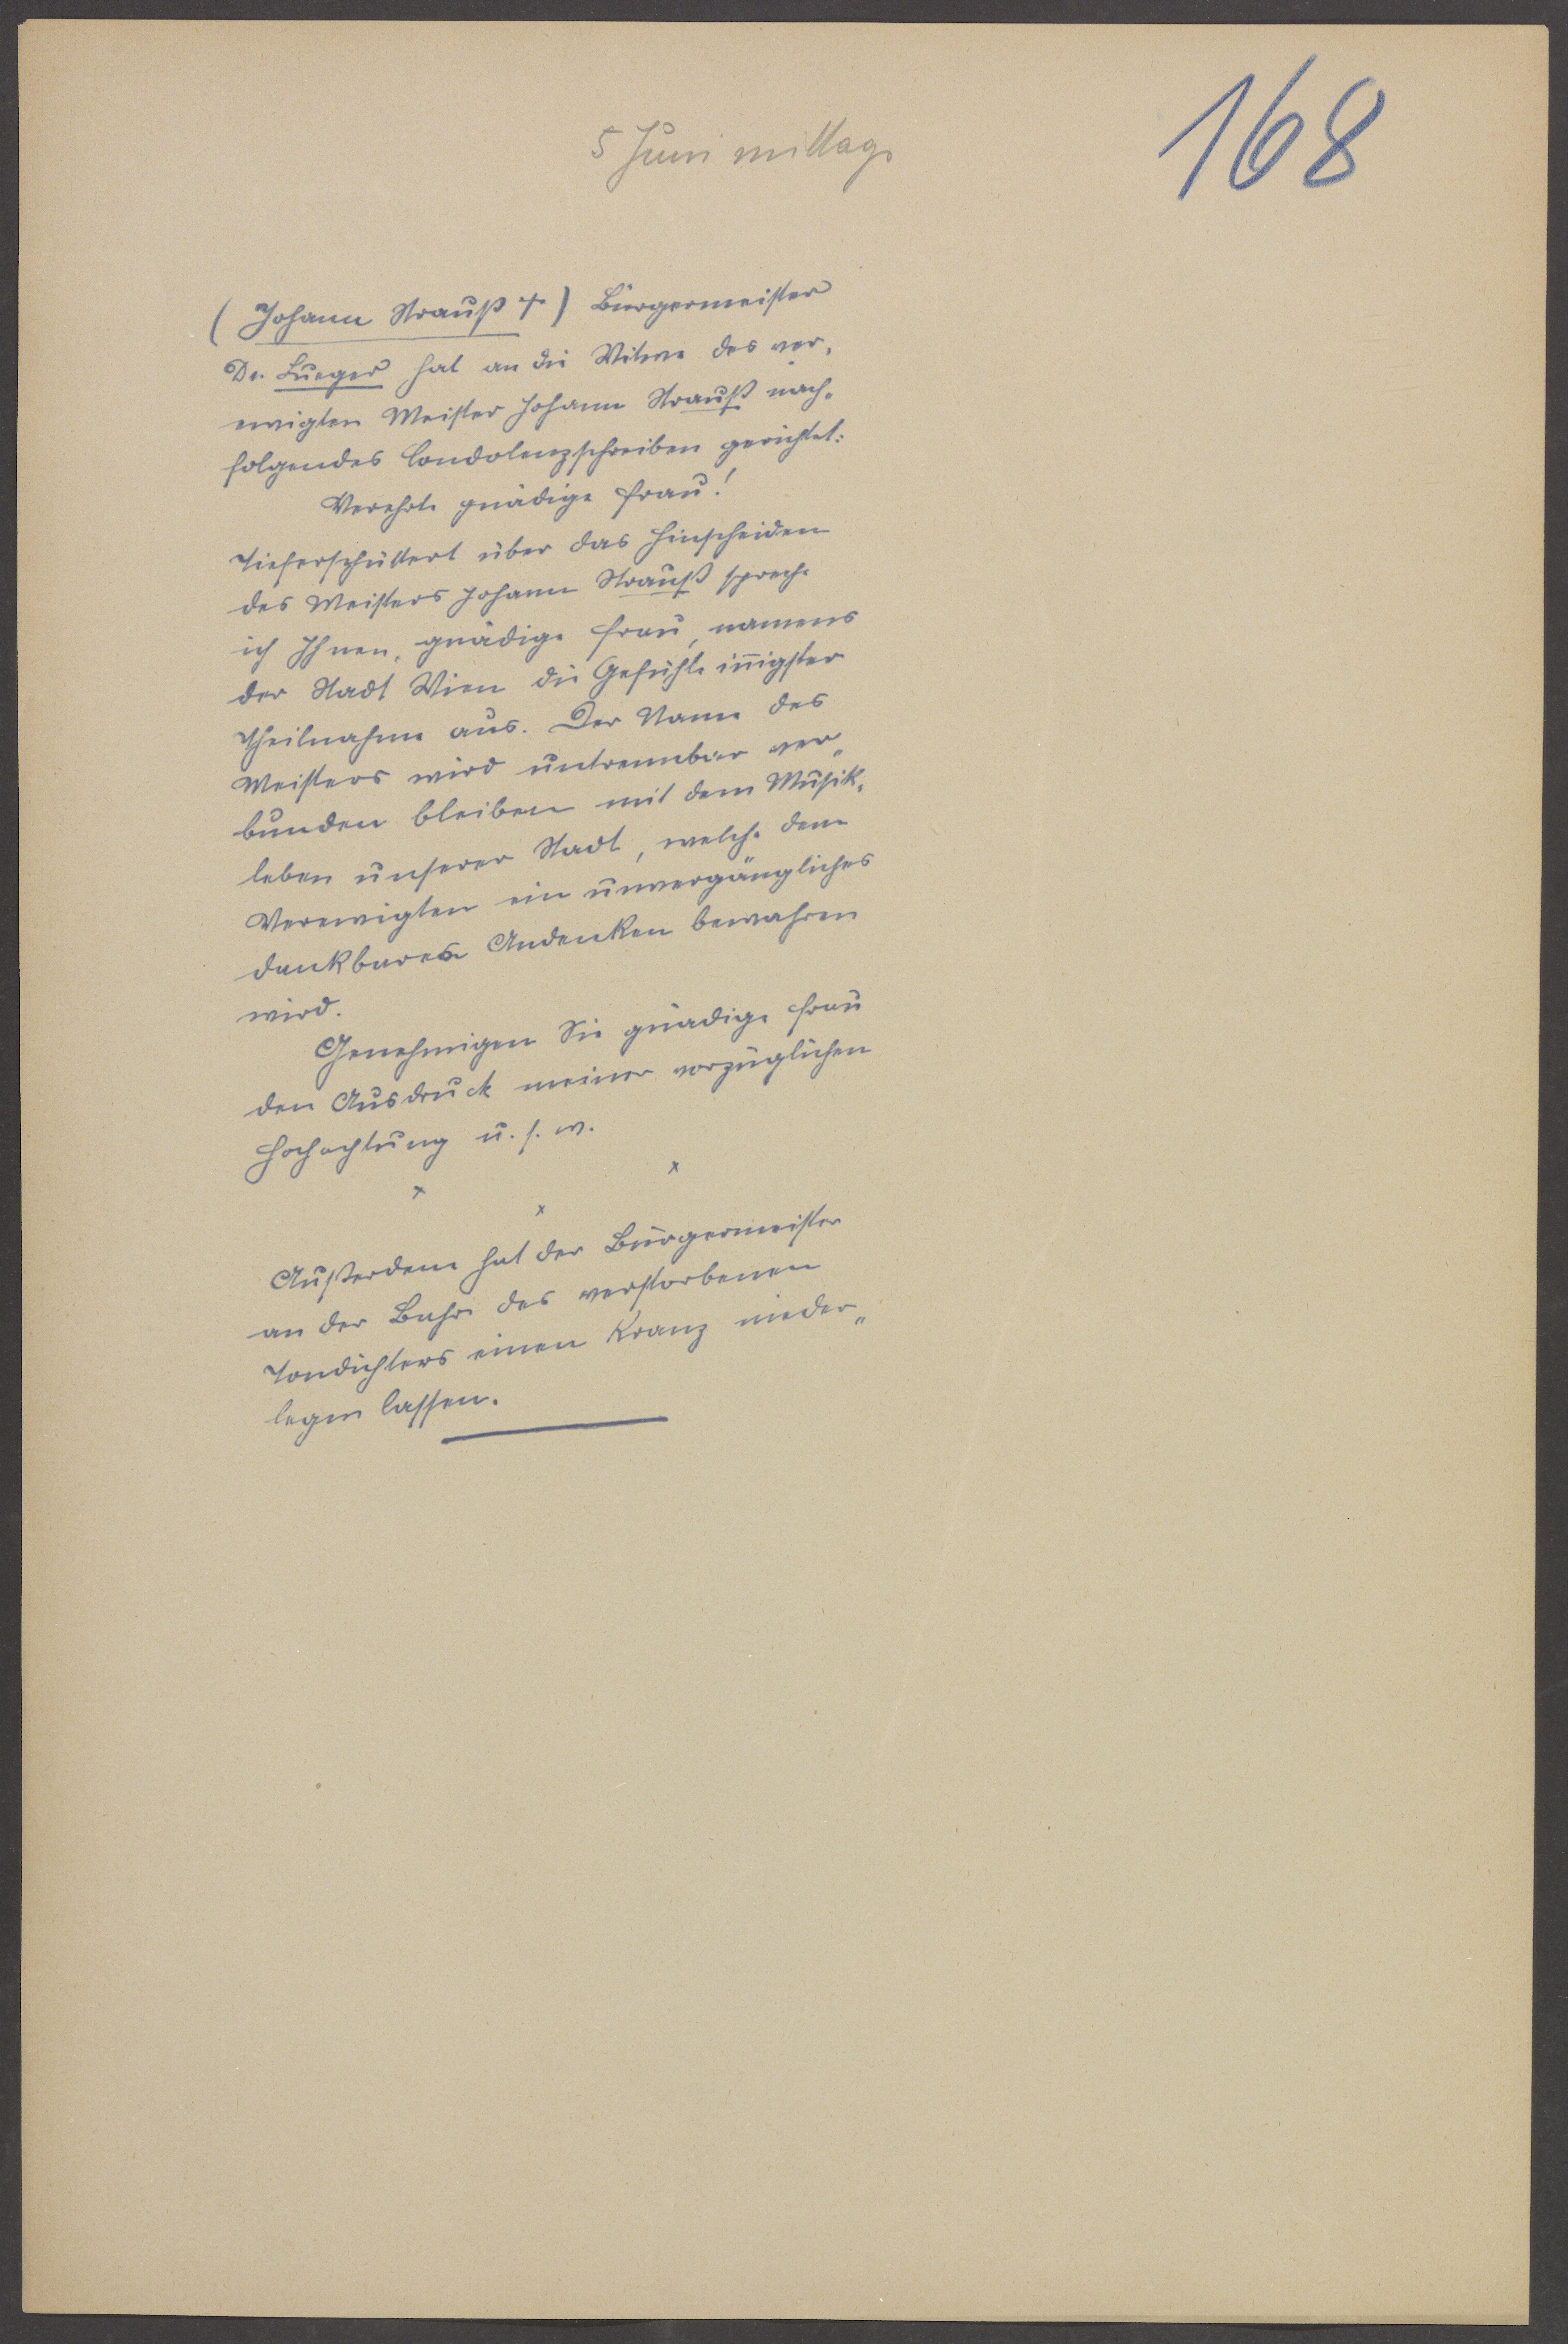 168
5 Juni mittags
(Johann Strauß †) Bürgermeister
Dr. Lueger hat an die Witwe des ver-
ewigten Meister Johann Strauß nach-
folgendes Condolenzschreiben gerichtet:
Verehrte gnädige Frau!
Tieferschüttert über das Hinscheiden
des Meisters Johann Strauß spreche
ich Ihnen, gnädige Frau, namens
der Stadt Wien die Gefühle iñigster
Theilnahme aus. Der Name des
Meisters wird untrennbar ver„
bunden bleiben mit dem Musik-
leben unserer Stadt, welche dem
Verewigten ein unvergängliches
dankbares Andenken bewahren
wird.
Genehmigen Sie gnädige Frau
den Ausdruck meiner vorzüglichen
Hochachtung u. s. w.
x x x
Außerdem hat der Bürgermeister
an der Bahre des verstorbenen
Tondichters einen Kranz nieder„
legen lassen.